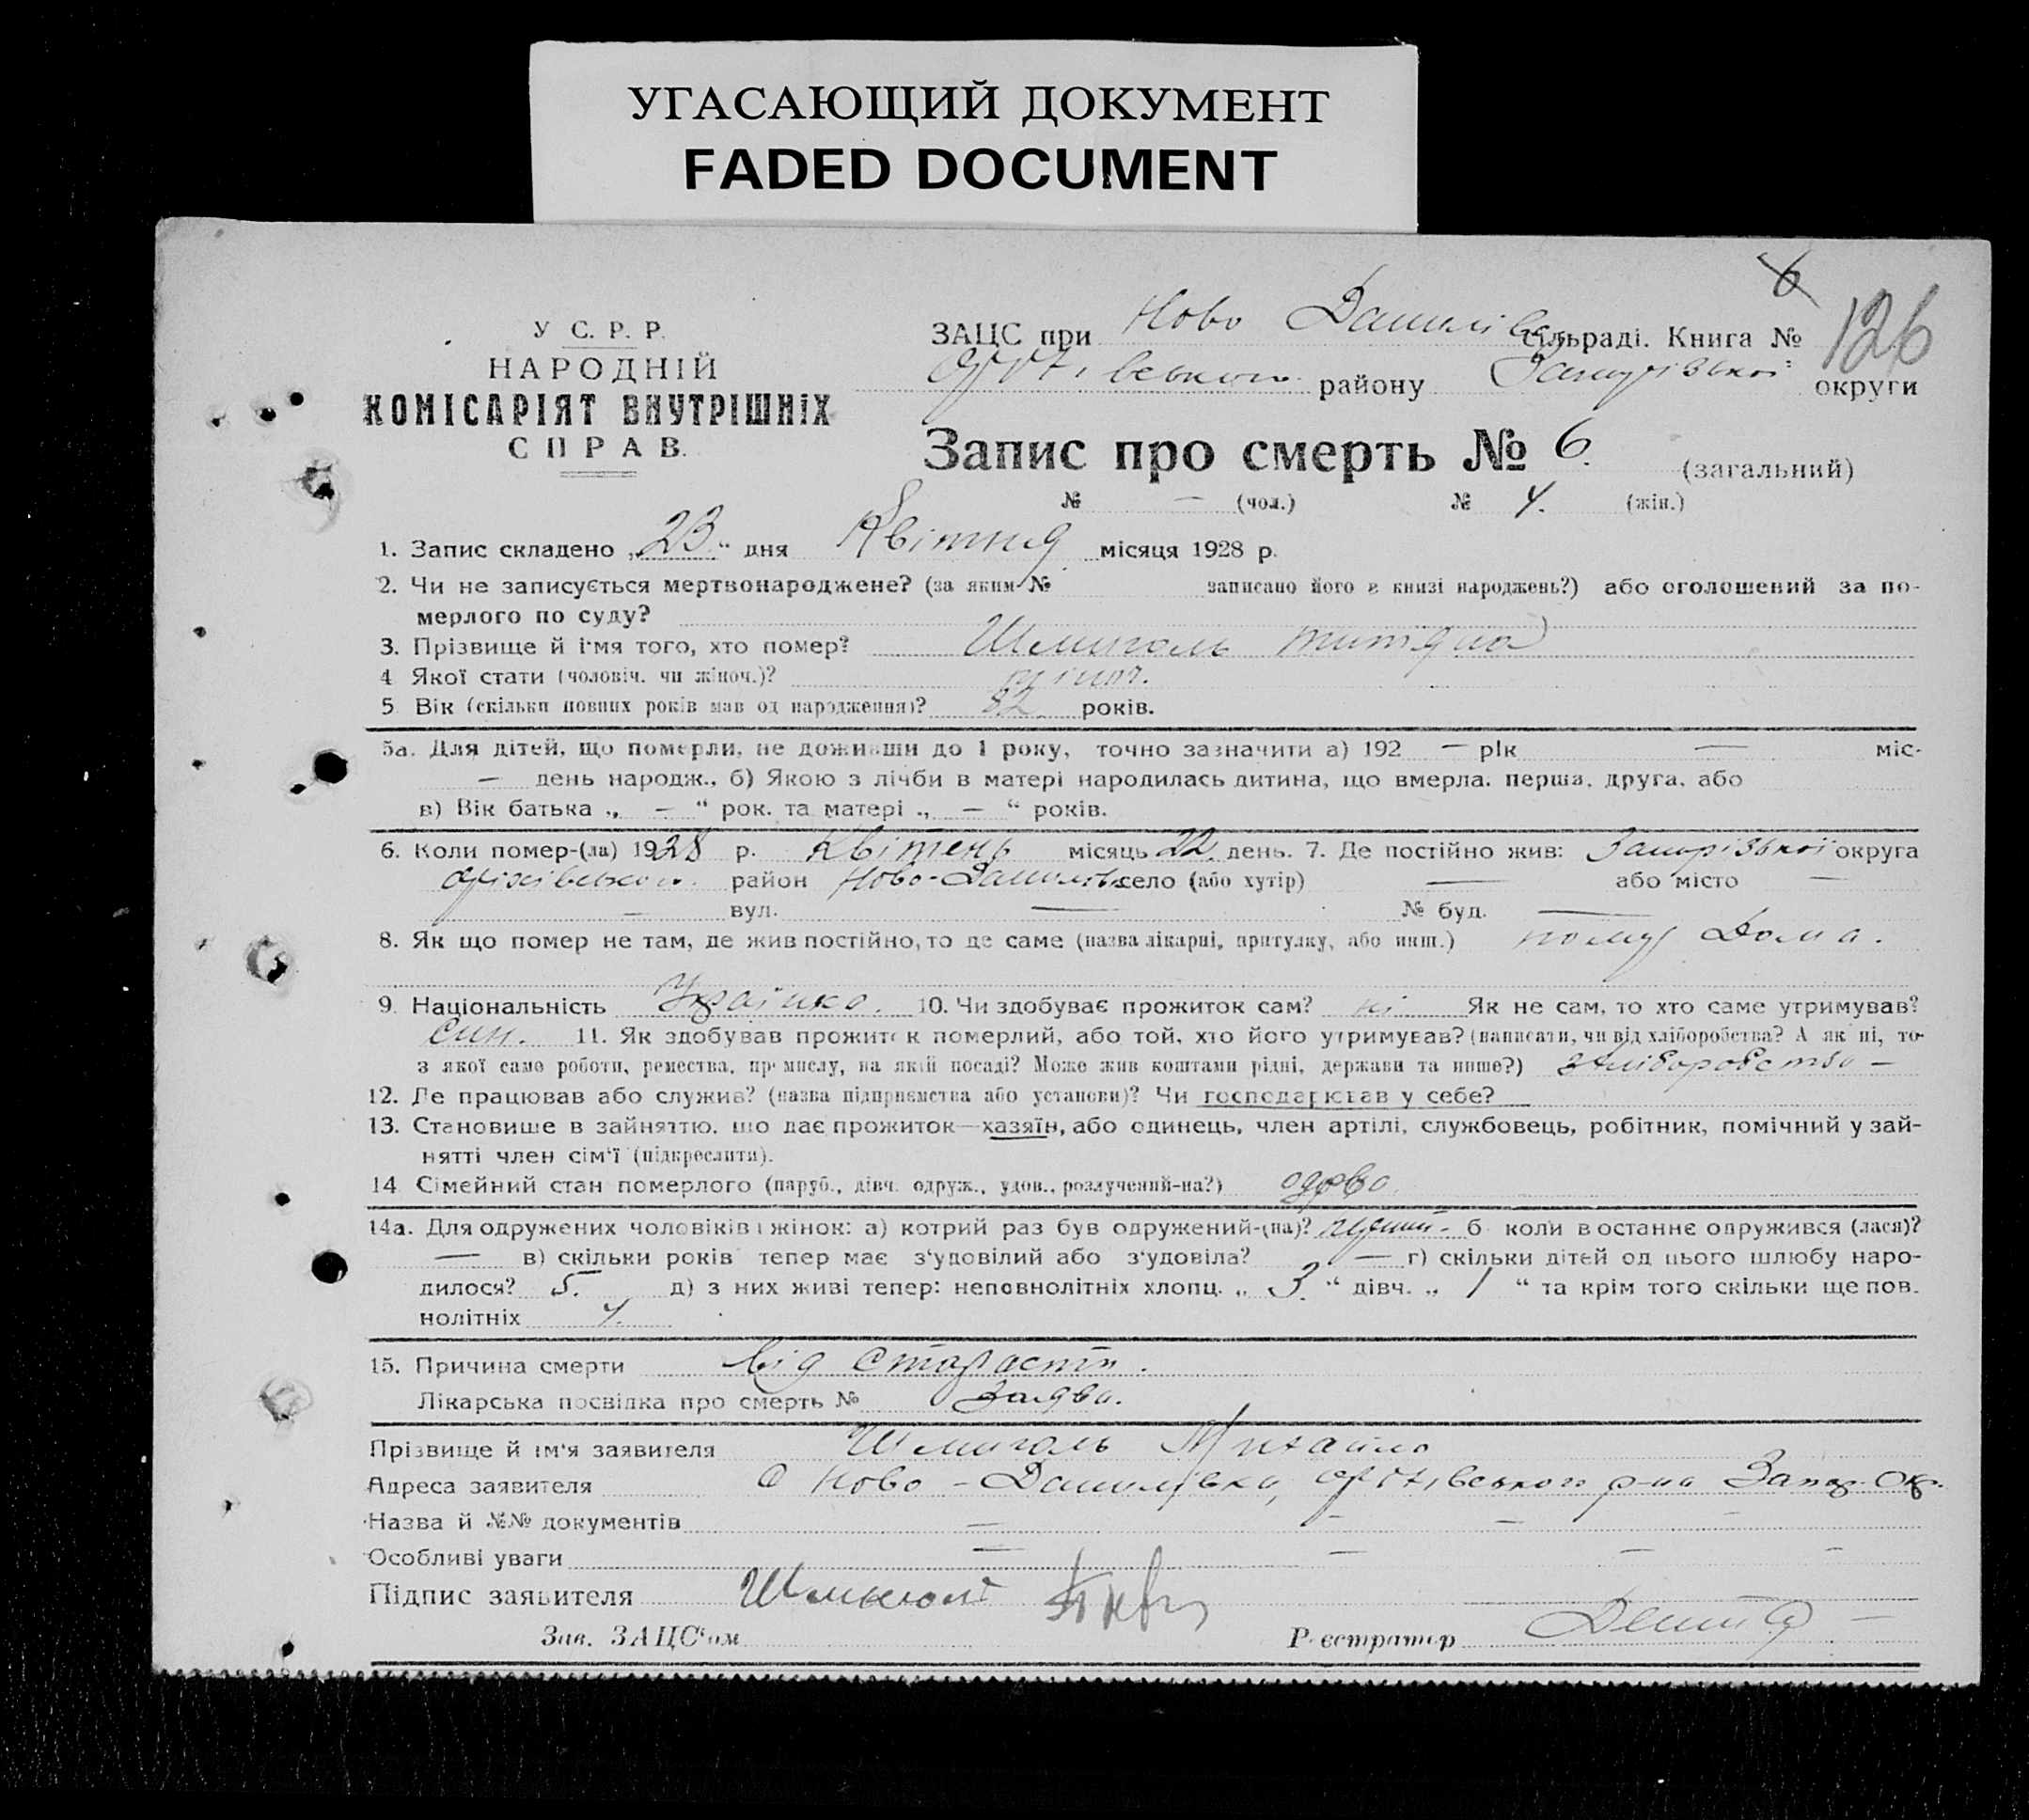 УГАСАЮЩИЙ ДОКУМЕНТ
FADED DOCUMENT
6
У С. Р. Р.
НАРОДНІЙ
КОМІСАРІЯТ ВНУТРІШНІХ
СПРАВ.
ЗАЦС при Ново Данилівс сільраді. Книга № 126
району Запорізької округи
Запис про смерть № 6. (загальний)
№ — (чол.) № 4. (жін.)
1. Запис складено „23“ дня Квітня місяця 1928 р.
2. Чи не записується мертвонароджене? (за яким № записано його в книзі народжень?) або оголошений за по-
мерлого по суду?
3. Прізвище й ім'я того, хто помер? Шмиголь
4 Якої стати (чоловіч. чи жіноч.)? жіноч.
5 Вік (скільки повних років мав од народження)? 82 років.
5а. Для дітей, що померли, не доживши до 1 року, точно зазначити а) 192 — рік — міс-
— день народж., б) Якою з лічби в матері народилась дитина, що вмерла. перша, друга, або
в) Вік батька „ — “ рок. та матері „ — “ років.
6. Коли помер-(ла) 1928 р. Квітень місяць 22 день. 7. Де постійно жив: Запорізької округа
Оріхівського район Ново-Данилівка село (або хутір) — або місто —
— вул. — № буд. —
8. Як що помер не там, де жив постійно, то де саме (назва лікарні, притулку, або инш.) Дома.
9. Національність Українка. 10. Чи здобуває прожиток сам? ні Як не сам, то хто саме утримував?
син. 11. Як здобував прожиток померлий, або той, хто його утримував? (написати, чи від хліборобства? А як ні, то-
з якої само роботи, ремества, промислу, на якій посаді? Може жив коштами рідні, держави та инше?) хліборобство —
12. Де працював або служив? (назва підприємства або установи)? Чи господарював у себе?
13. Становище в зайняттю, що дає прожиток—хазяїн, або одинець, член артілі, службовець, робітник, помічний у зай-
нятті член сім'ї (підкреслити).
14 Сімейний стан померлого (паруб., дівч. одруж., удов., розлучений-на?)
14а. Для одружених чоловіків і жінок: а) котрий раз був одружений-(на)? б коли востаннє одружився (лася)?
— в) скільки років тепер має з'удовілий або з'удовіла? — г) скільки дітей од цього шлюбу наро-
дилося? 5. д) з них живі тепер: неповнолітніх хлопц. „ 3. “ дівч. „ 1 “ та крім того скільки ще пов.
нолітніх 4.
15. Причина смерти від старасти.
Лікарська посвідка про смерть № Заява.
Прізвище й ім'я заявителя Шмиголь Михайло
Адреса заявителя с Ново-Данилівка, Оріхівського р-на Запор. Ок.
Назва й №№ документів — — — —
Особливі уваги — — — —
Підпис заявителя
Зав. ЗАЦС'ом Реєстратор